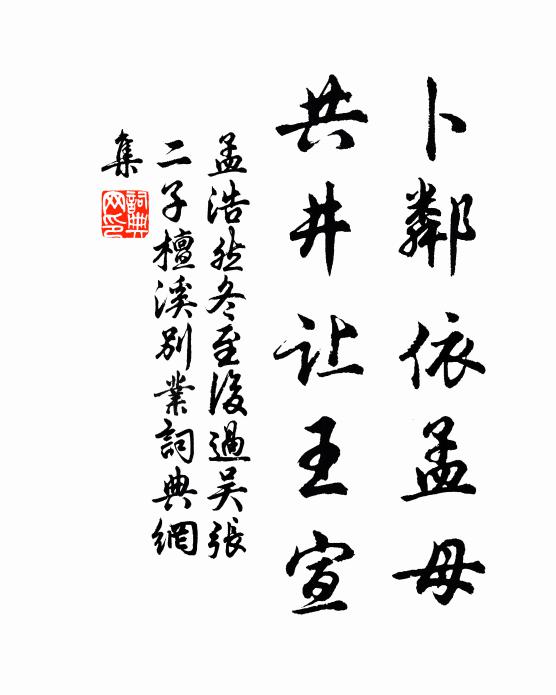 卜鄰依孟母
共井让王宣
孟浩然冬至後過吴張
二子檀溪別業詞典網
集
詞典
网印